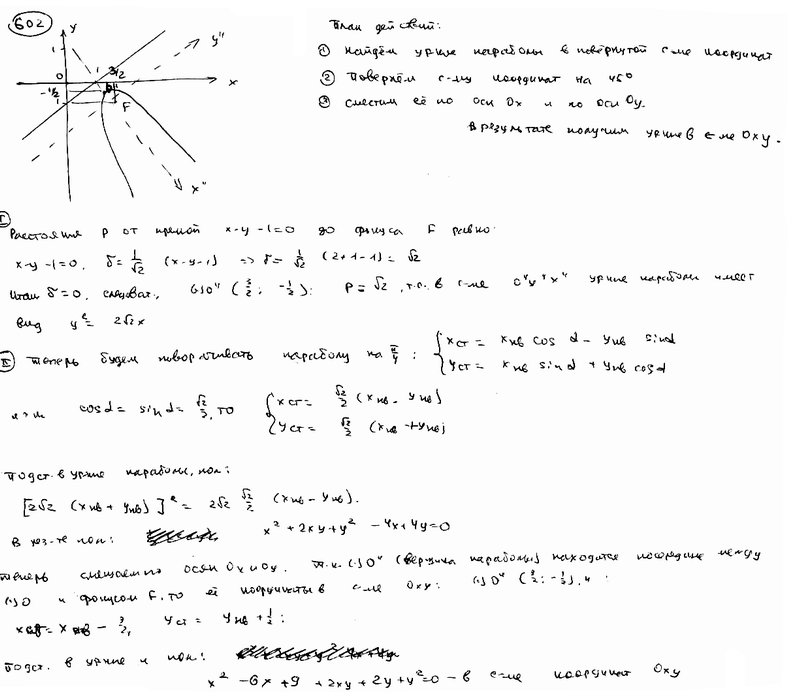 602
План действий:
① Найдём ур-ние параболы в повёрнутой с-ме координат
② Повернём с-му координат на 45°
③ сместим её по оси Ox и по оси Oy.
В результате получим ур-ние в с-ме Oxy.
y
y''
1
0
1
3/2
x
-1/2
-1
O''
F
x''
I
Расстояние p от прямой x-y-1=0 до фокуса F равно:
x-y-1=0, δ=1/√2 (x-y-1) => δ=1/√2 (2+1-1)=√2
δ=0, следоват., (·)O'' (3/2; -1/2): p=√2, т.е. в с-ме O''y''x'' ур-ние параболы имеет
вид y²= 2√2x
II Теперь будем поворачивать параболу на π/4: { xст = xнв cos α - yнв sin α
yст = xнв sin α + yнв cos α
cos α = sin α = √2/2, то { xст = √2/2 (xнв - yнв)
yст = √2/2 (xнв + yнв)
Подст. в ур-ние параболы, пол:
[2√2 (xнв + yнв)]² = 2√2 √2/2 (xнв - yнв).
в рез-те пол: x² + 2xy + y² - 4x + 4y = 0
Теперь смещаем по осям Ox и Oy. Т.к. (·)O'' (вершина параболы) находится посередине между
(·)O и фокусом F, то её координаты в с-ме Oxy: (·)O'' (3/2; -1/2), и:
xст = xнв - 3/2, yст = yнв + 1/2:
Подст. в ур-ние и пол:
x² - 6x + 9 + 2xy + 2y + y² = 0 - в с-ме координат Oxy